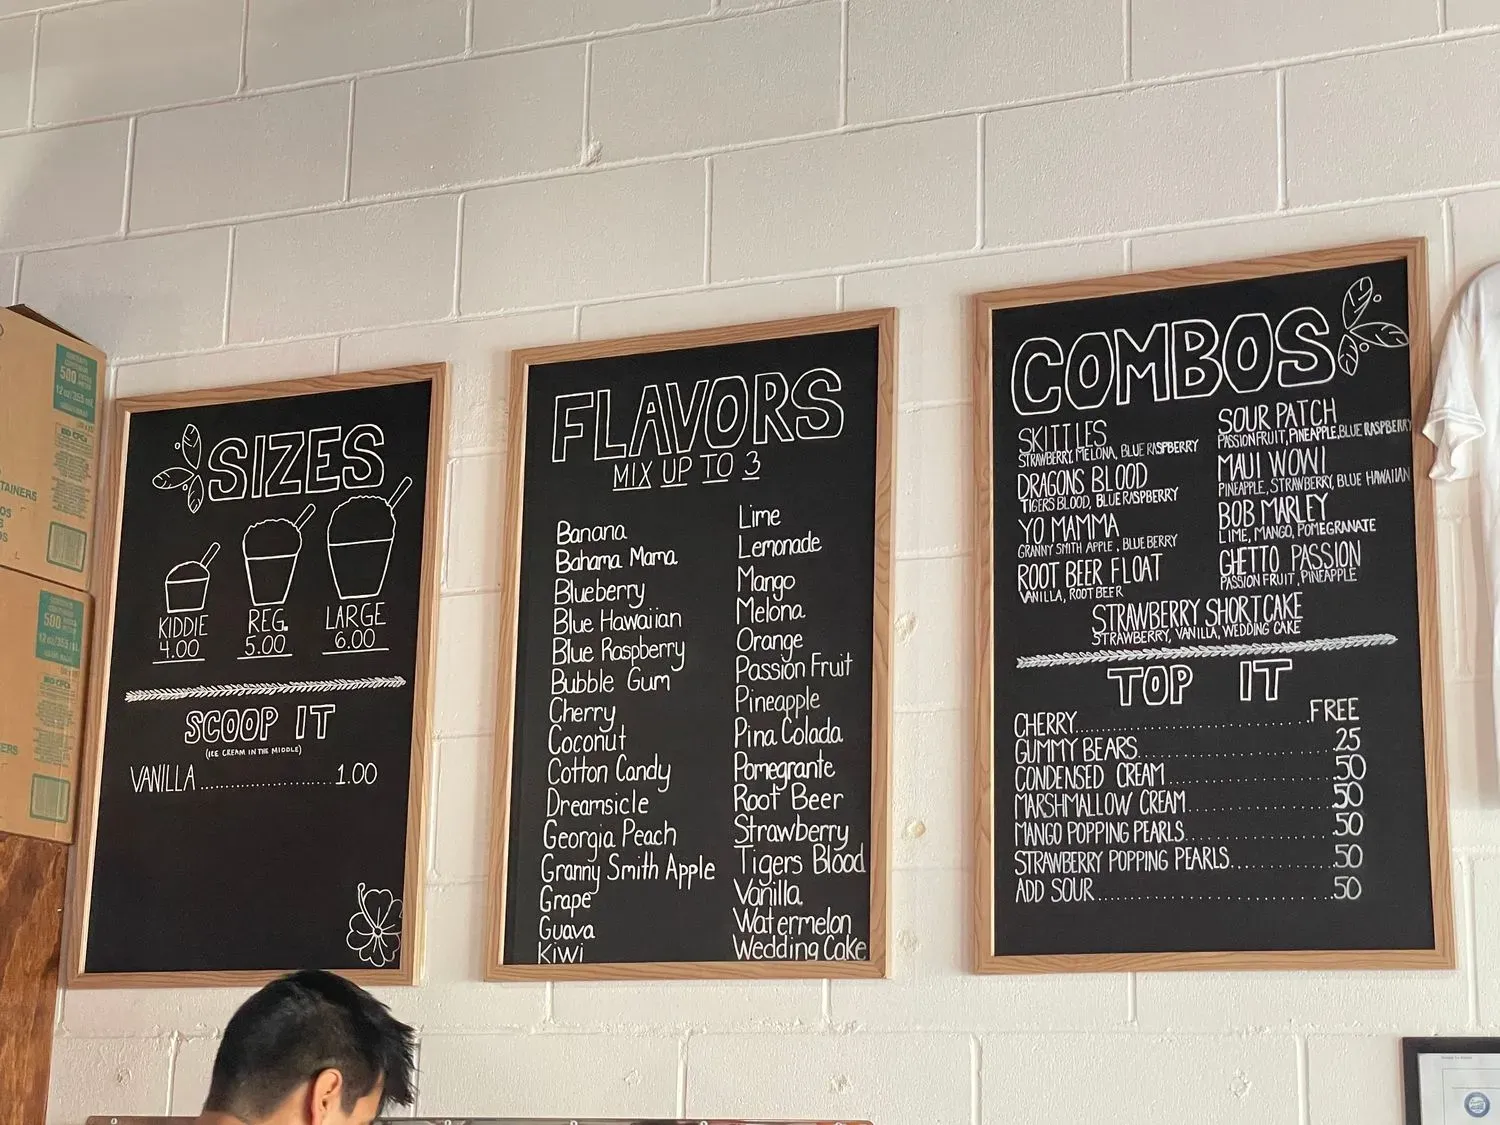 SIZES
KIDDIE
4.00
REG.
5.00
LARGE
6.00
SCOOP IT
(ICE CREAM IN THE MIDDLE)
VANILLA....................1.00
FLAVORS
MIX UP TO 3
Banana
Bahama Mama
Blueberry
Blue Hawaiian
Blue Raspberry
Bubble Gum
Cherry
Coconut
Cotton Candy
Dreamsicle
Georgia Peach
Granny Smith Apple
Grape
Guava
Kiwi
Lime
Lemonade
Mango
Melona
Orange
Passion Fruit
Pineapple
Pina Colada
Pomegrante
Root Beer
Strawberry
Tigers Blood
Vanilla
Watermelon
Wedding Cake
COMBOS
SKITTLES
STRAWBERRY, MELONA, BLUE RASPBERRY
DRAGONS BLOOD
TIGERS BLOOD, BLUE RASPBERRY
YO MAMMA
GRANNY SMITH APPLE, BLUE BERRY
ROOT BEER FLOAT
VANILLA, ROOT BEER
SOUR PATCH
PASSION FRUIT, PINEAPPLE, BLUE RASPBERRY
MAUI WOWI
PINEAPPLE, STRAWBERRY, BLUE HAWAIIAN
BOB MARLEY
LIME, MANGO, POMEGRANATE
GHETTO PASSION
PASSION FRUIT, PINEAPPLE
STRAWBERRY SHORTCAKE
STRAWBERRY, VANILLA, WEDDING CAKE
TOP IT
CHERRY....................FREE
GUMMY BEARS....................25
CONDENSED CREAM....................50
MARSHMALLOW CREAM....................50
MANGO POPPING PEARLS....................50
STRAWBERRY POPPING PEARLS....................50
ADD SOUR....................50
500
12 oz/355 mL
TAINERS
OS
S
500
12 oz/355 mL
ERS